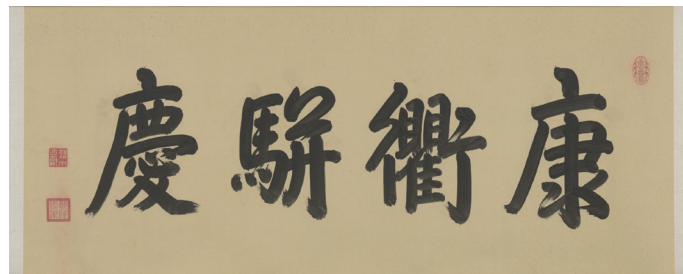 康衢駢慶